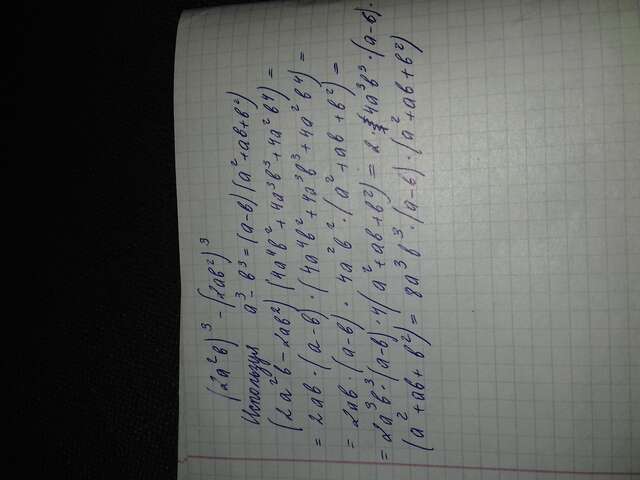 (2a²b)³ - (2ab²)³
Используя a³-b³=(a-b)(a²+ab+b²)
(2a²b-2ab²)(4a⁴b²+4a³b³+4a²b⁴)=
=2ab·(a-b)·(4a⁴b²+4a³b³+4a²b⁴)=
=2ab·(a-b)·4a²b²·(a²+ab+b²)=
=2a³b³·(a-b)·4(a²+ab+b²)=2·4a³b³·(a-b)·
(a²+ab+b²)=8a³b³·(a-b)·(a²+ab+b²)